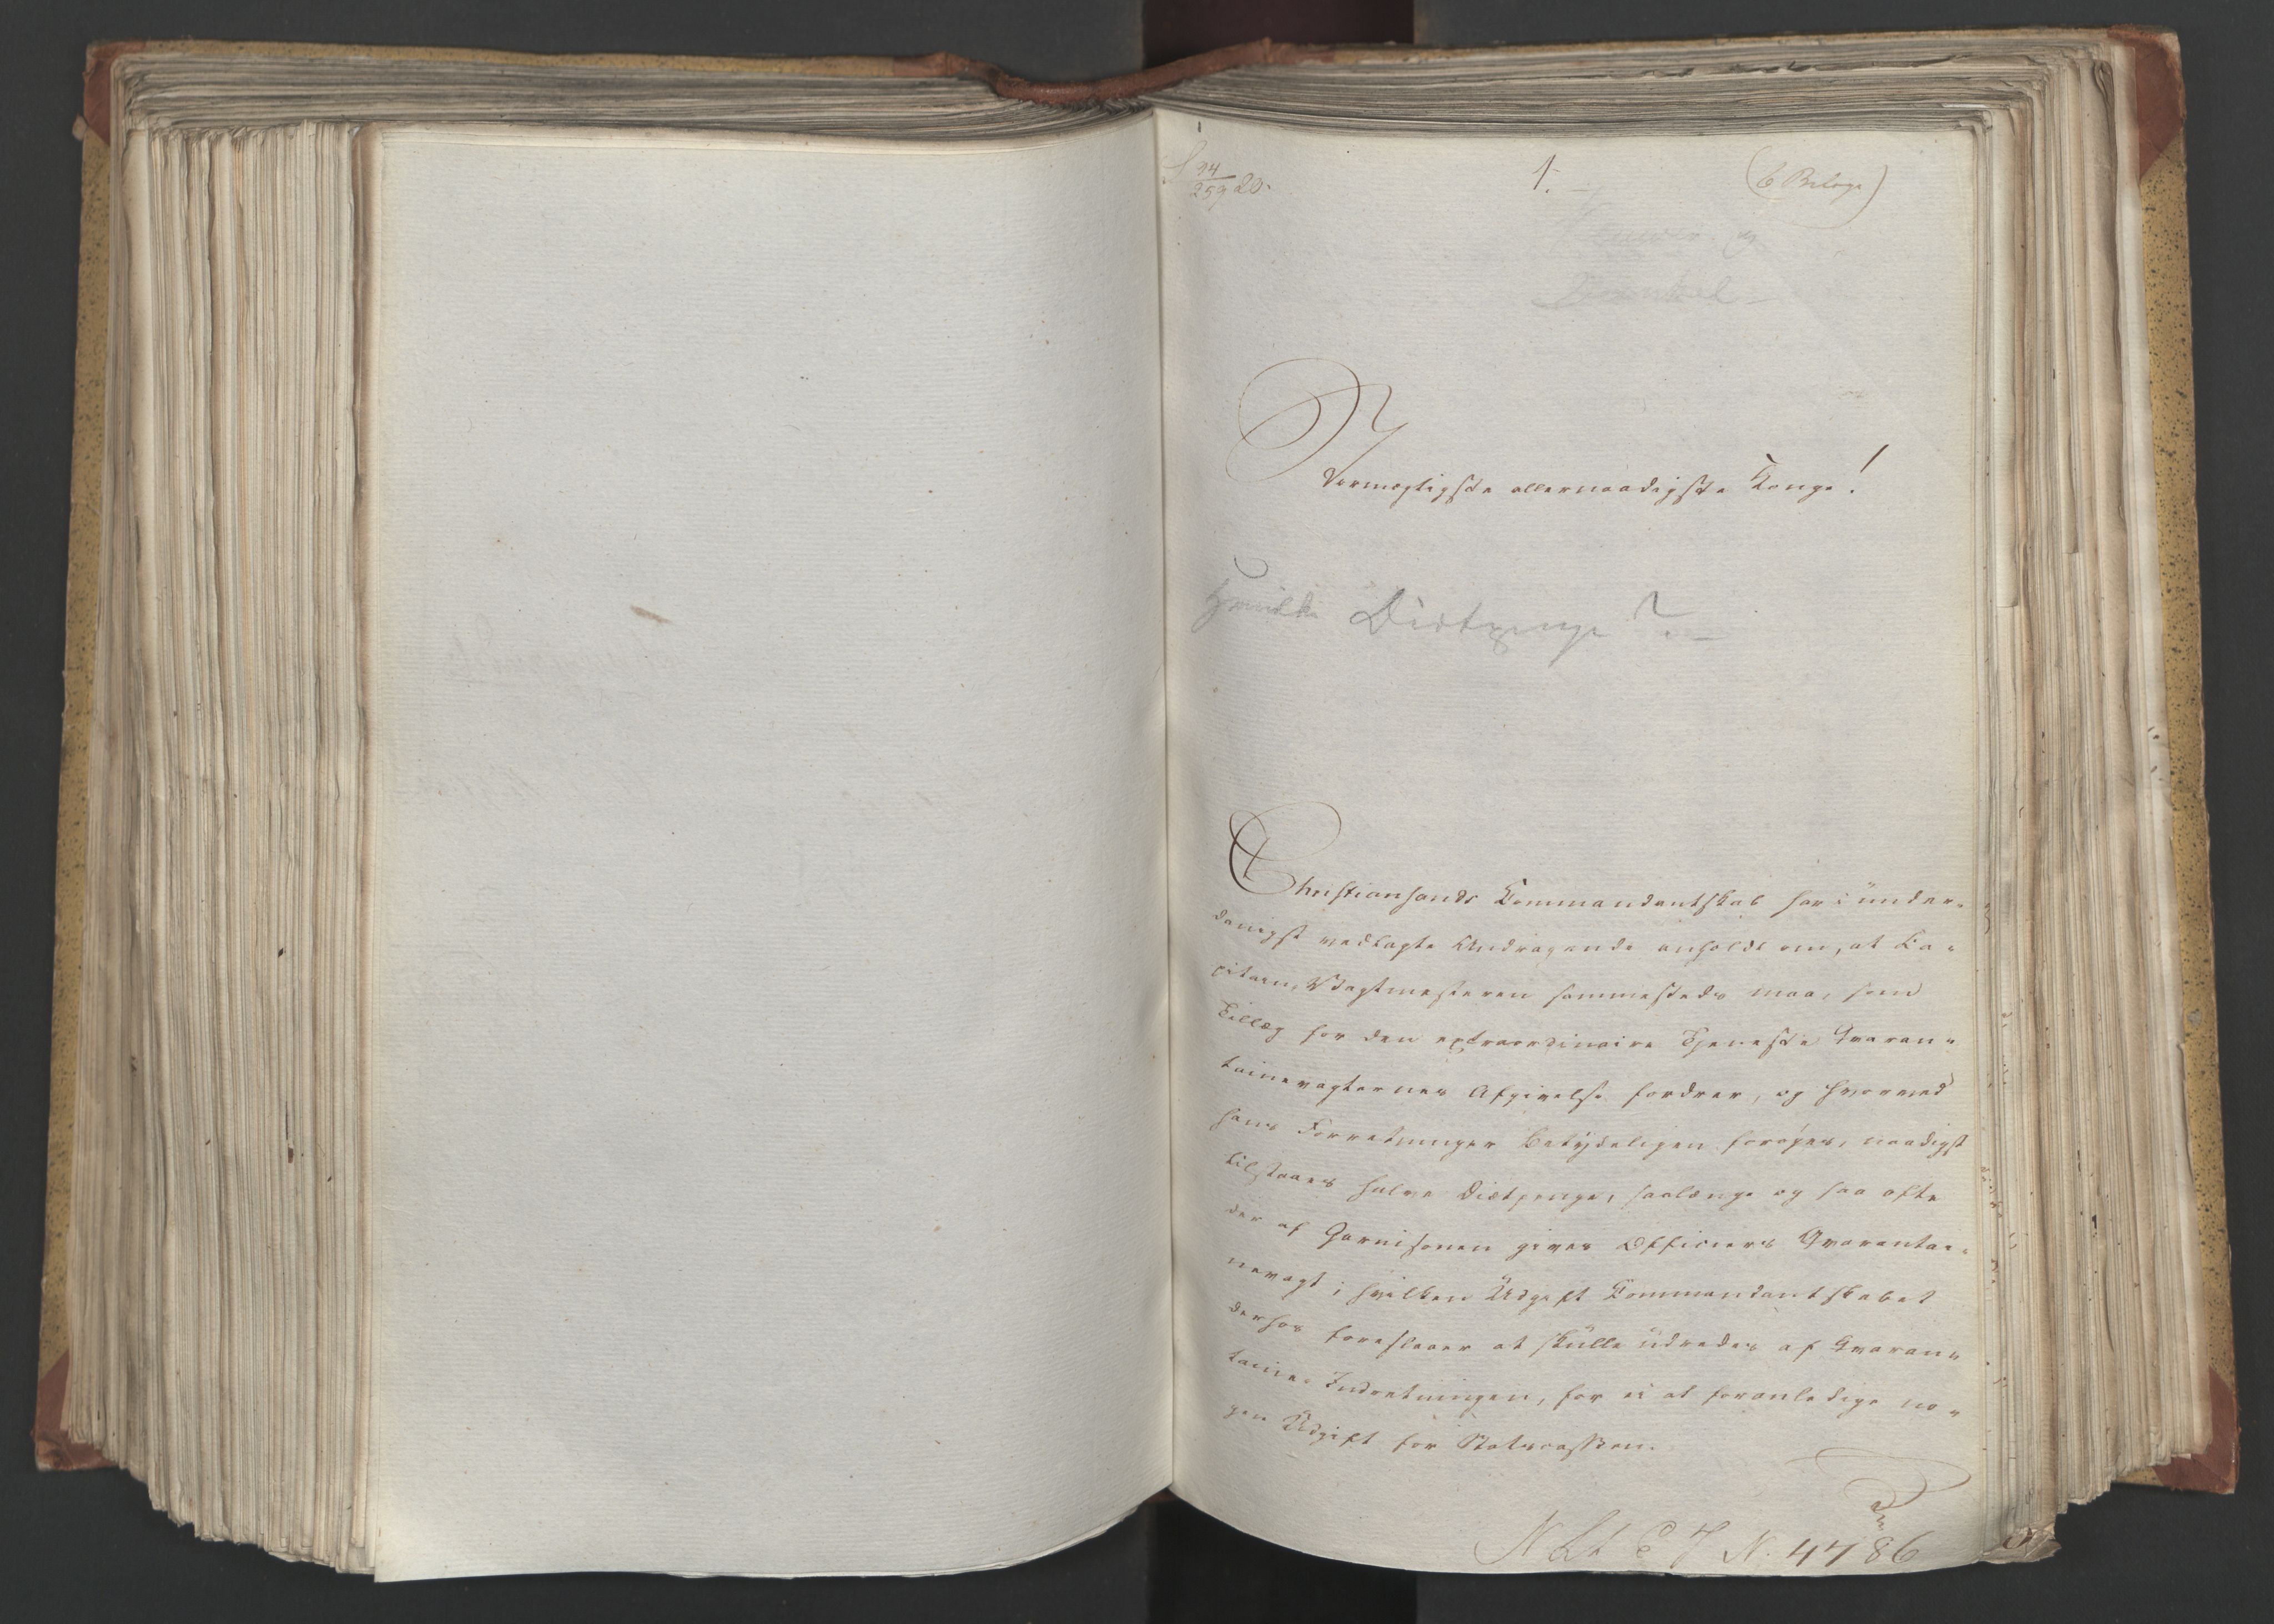 94
1.
(6 Bilage)
Stormægtigste allernaadigste Konge!
Hvilke Diætpenge?
Christiansands Commandantskab har i under-
danigst vedlagte Andragende anholdt om, at Ca-
pitain, Vagtmesteren sammesteds maa, som
Tillæg for den extraordinaire Tjeneste Qvaran-
tainevagternes Afgivelse fordrer, og hvorved
hans Forretninger betydeligen forøges, naadigst
tilstaaes halve Diætpenge, saalænge og saa ofte
der af Garnisonen gives Officiers Qvarantai-
nevagt; hvilken Udgift Commandantskabet
derhos foreslaaer at skulle udredes af Qvaran-
taine-Indretningen, for ei at foranledige no-
gen Udgift for Statscassen.
N. 4786